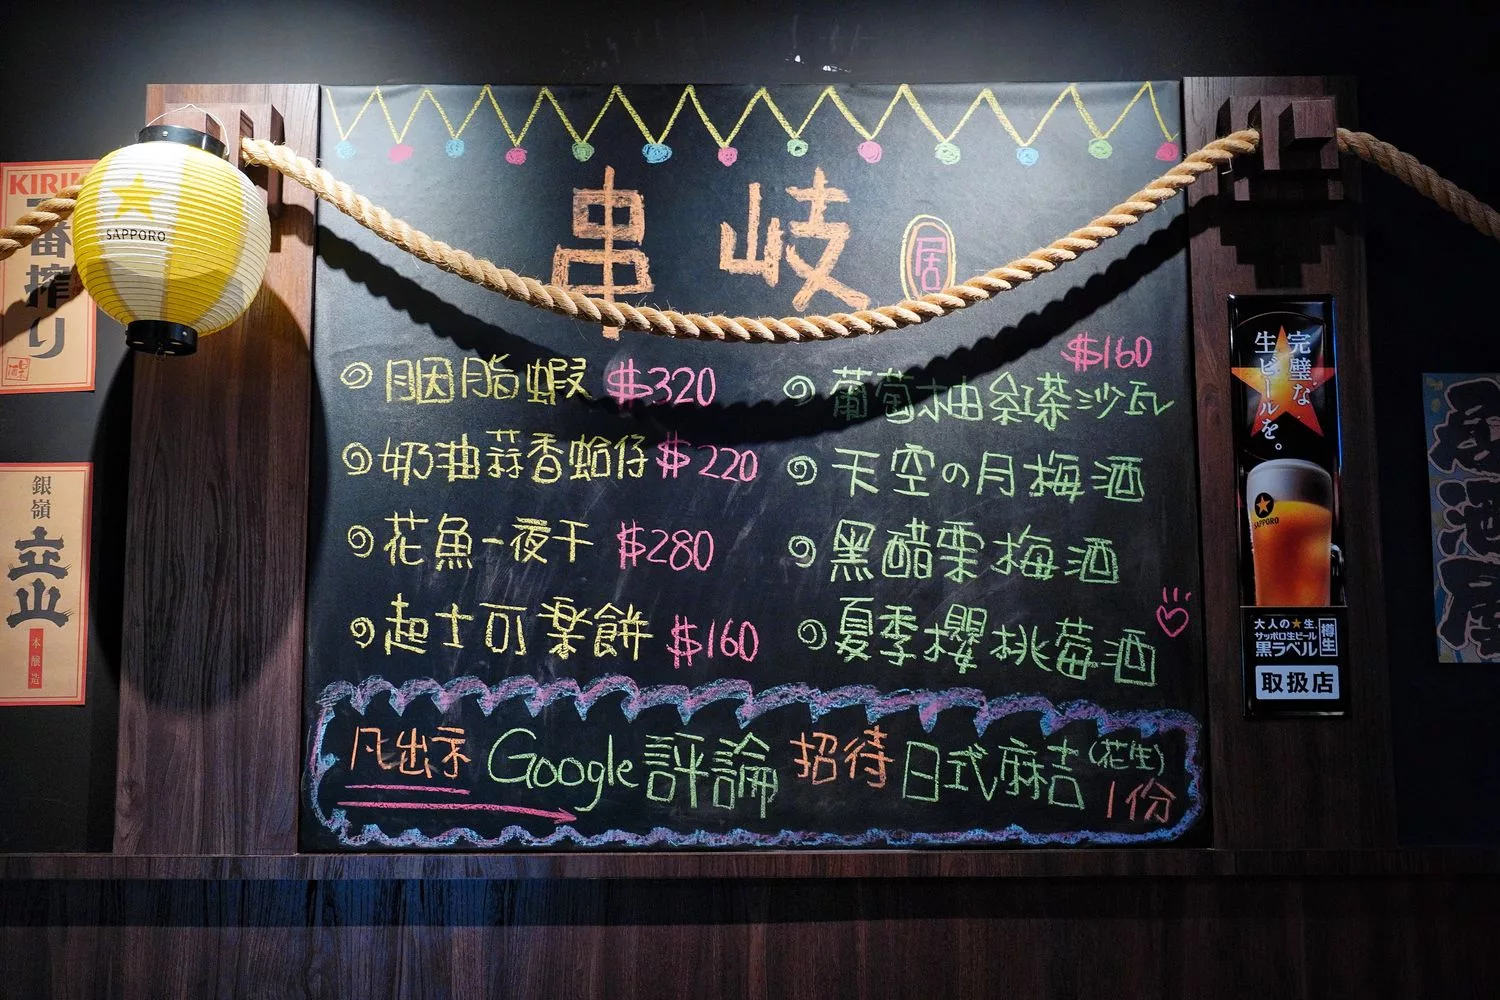 KIRIN
一番搾り
銀嶺
立山
本醸造
SAPPORO
串岐
居
胭脂蝦 $320
奶油蒜香蛤仔 $220
花魚一夜干 $280
起士可樂餅 $160
$160
葡萄柚紅茶沙瓦
天空の月梅酒
黑醋栗梅酒
夏季櫻桃莓酒
凡出示 Google評論 招待 日式麻吉(花生) 1份
完璧な
生ビールを。
SAPPORO
大人の★生
サッポロ生ビール
黒ラベル
樽生
取扱店
居酒屋